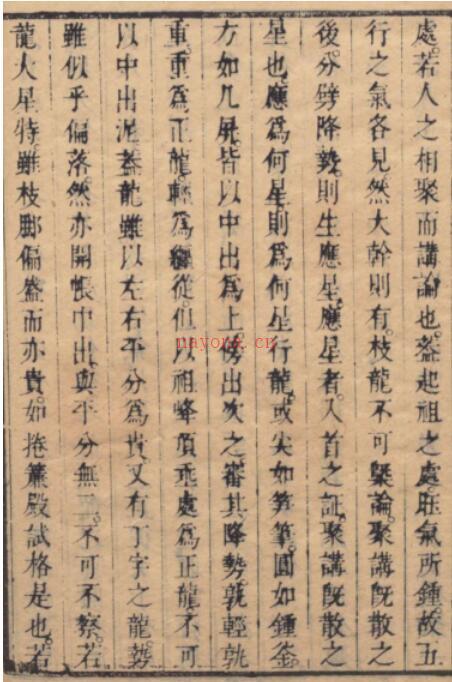 處。若人之相聚而講論也。葢起祖之處。旺氣所鍾。故五
行之氣各見。然大幹則有。枝龍不可槩論。聚講旣散之
後。分劈降勢。則生應星。應星者。入首之証。聚講旣散之
星也。應爲何星。則爲何星行龍。或尖如笋筆。圓如鍾釜。
方如几屏。皆以中出爲上。傍出次之。審其降勢。孰輕孰
重。重爲正龍。輕爲纒從。但以祖峰頂乖處爲正龍。不可
以中出泥。葢龍雖以左右平分爲貴。又有丁字之龍。勢
雖似乎偏落。然亦開帳中出。與平分無二。不可不察。若
龍大星特。雖枝脚偏盛而亦貴。如捲簾殿試格是也。若
nayong.cn